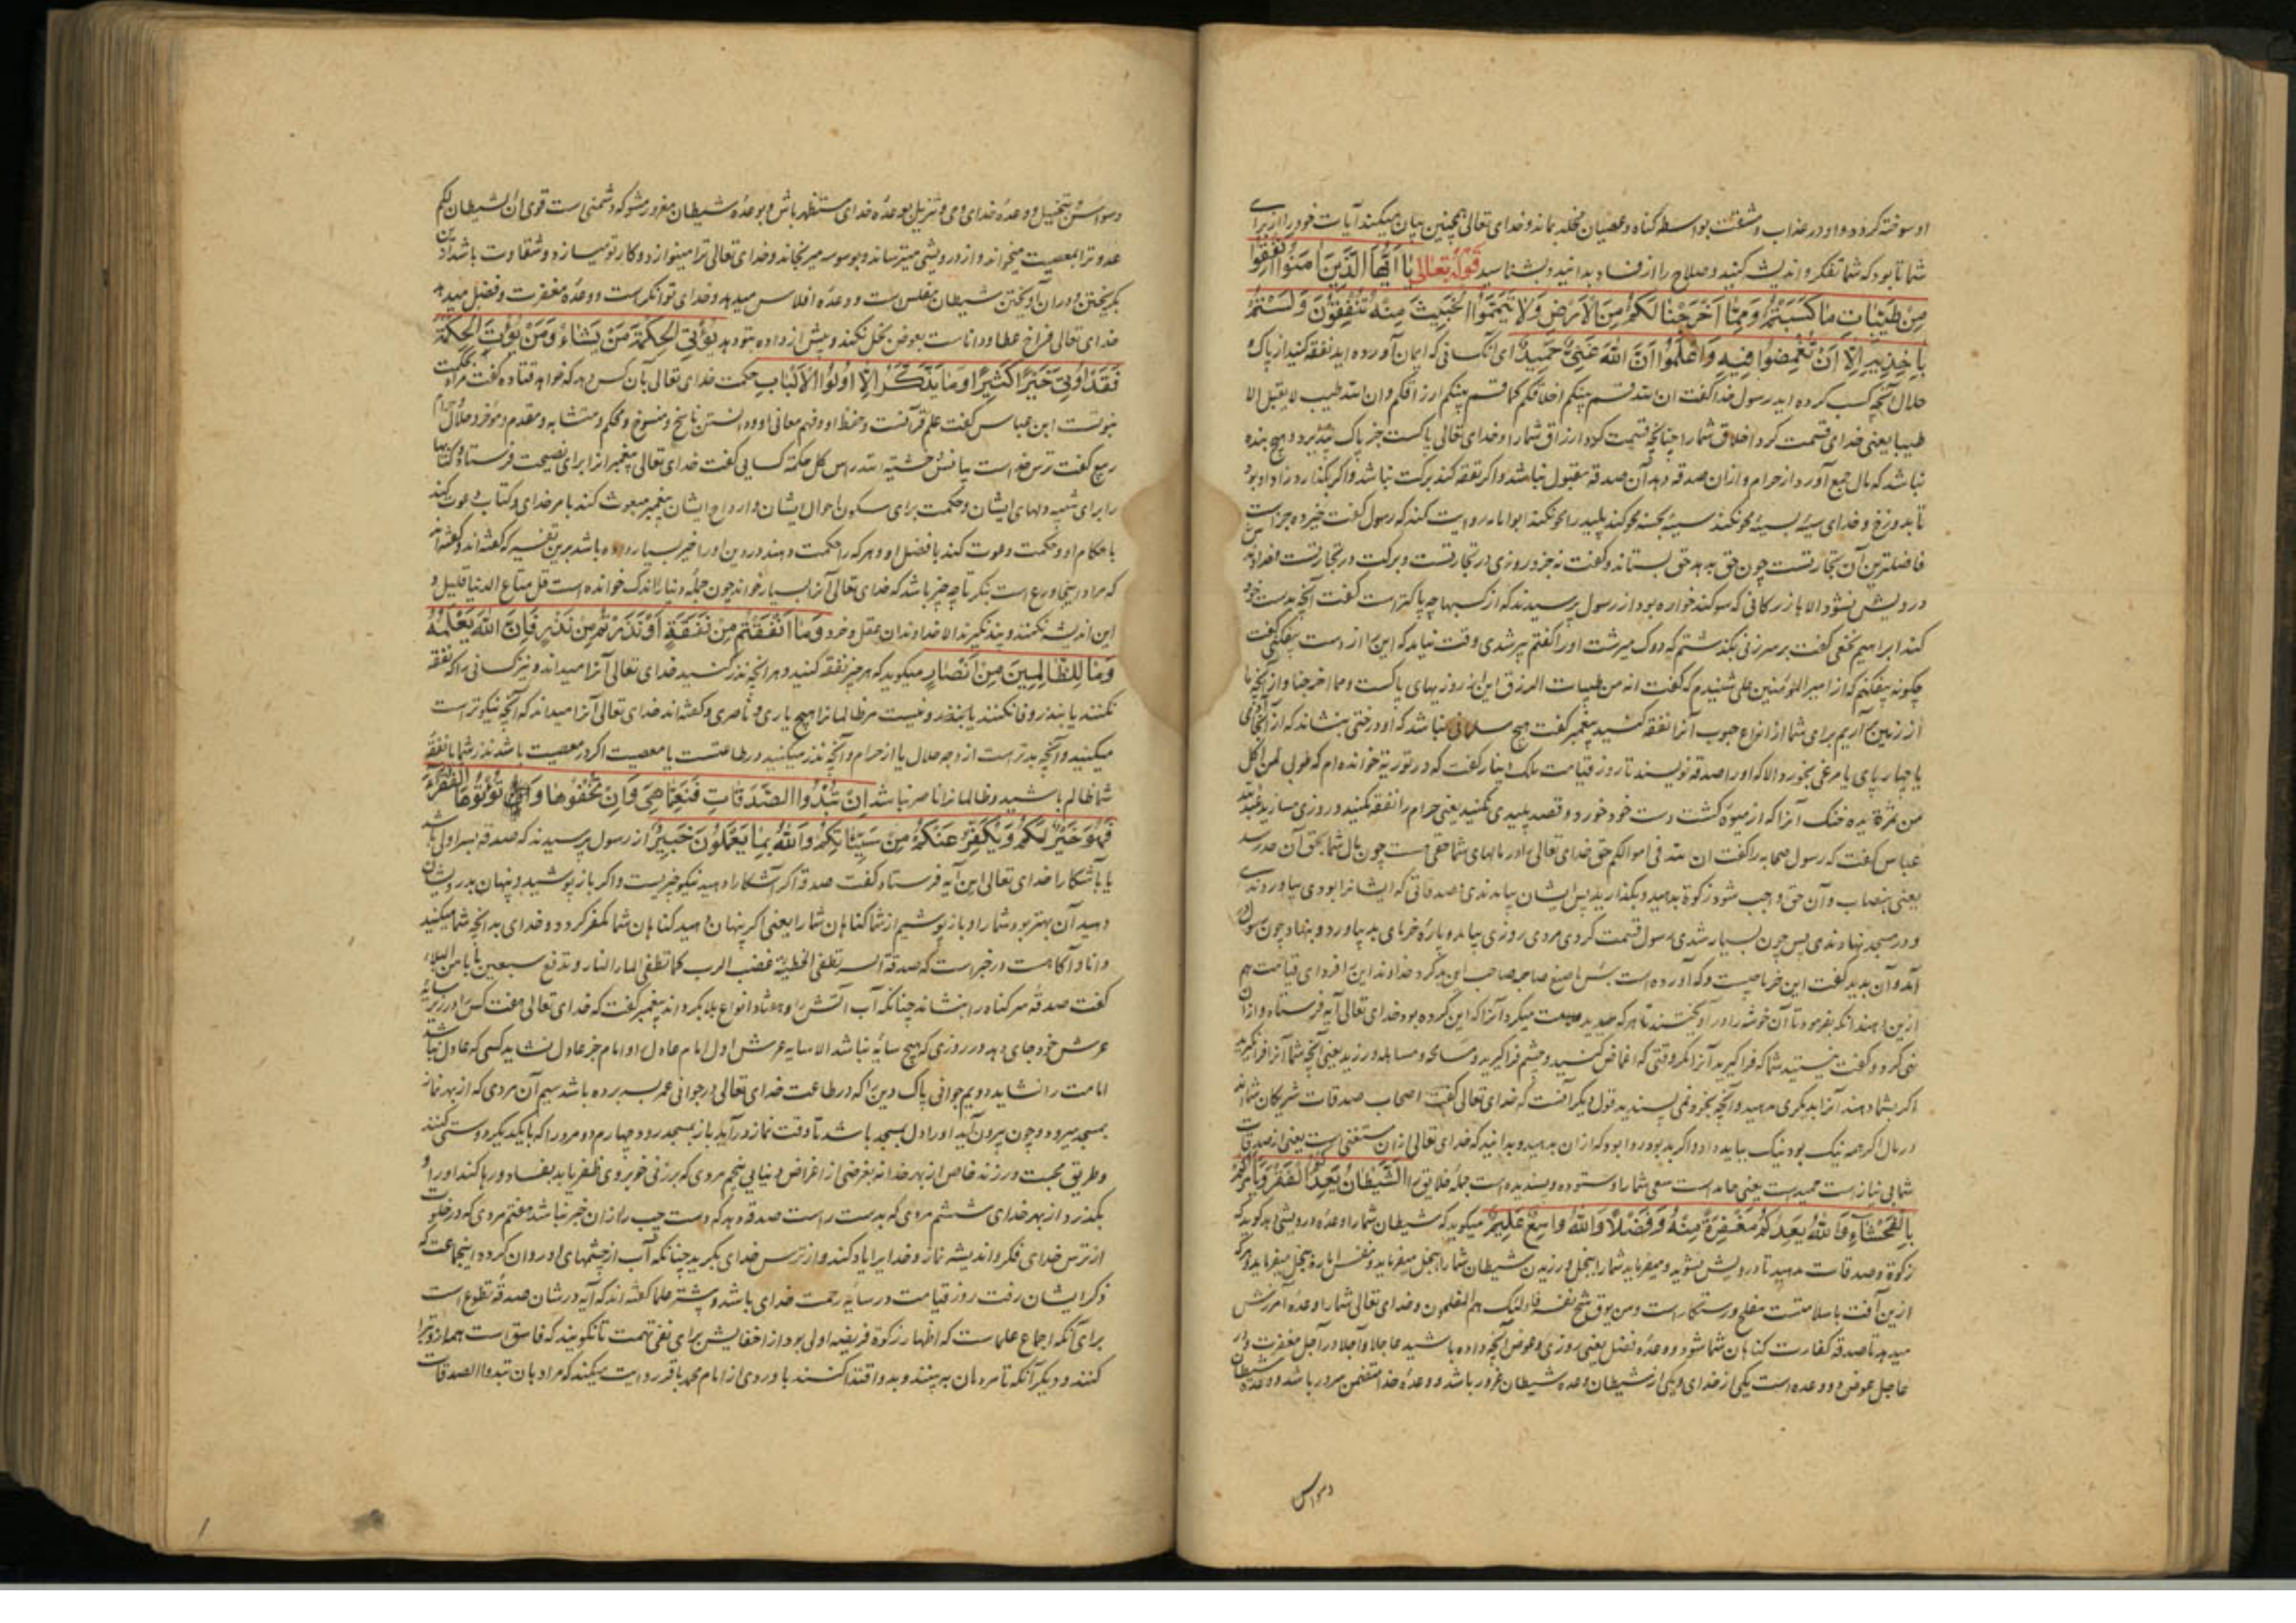 او سوخته کردد و او در عذاب و مشقت بواسطه کناه و عصیان مخلد بماند و خدای تعالی همچنین بیان میکند آیات خود را از برای
شما تا بود که شما تفکر و اندیشه کنید و صلاح را از فساد بدانید و بشناسید قوله تعالی یا ایها الذین امنوا انفقوا
من طیبات ما کسبتم ومما اخرجنا لکم من الارض ولا تیمموا الخبیث منه تنفقون ولستم
باخذیه الا ان تغمضوا فیه واعلموا ان الله غنی حمید ای آنکسانی که ایمان آورده اید نفقه کنید از پاک
حلال آنچه کسب کرده اید رسول خدا کفت ان الله قسم بینکم اخلاقکم کما قسم بینکم ارزاقکم وان الله طیب لا یقبل الا
طیبا یعنی خدای قسمت کرد اخلاق شما را چنانچه قسمت کرد ارزاق شما را و خدای تعالی پاکست جز پاک نپذیرد و هیچ بنده
نباشد که مال جمع آورد از حرام و ازان صدقه دهد آن صدقه مقبول نباشد و اکر نفقه کند برکت نباشد و اکر بکذارد زاد او بود
تا بدوزخ و خدای سیئه بسیئه محو نکند سیئه بحسنه محو کند پلید را محو نکند ابو امامه روایت کند که رسول کفت خیر ده جزاست
فاضلترین آن تجارتست چون حق بدهد حق بستاند و کفت نه جزو روزی در تجارتست و برکت در تجارتست
درویش نشود الا بازرکانی که سوکند خواره بود از رسول پرسیدند که از کسبها چه پاکتر است کفت آنچه بدست خود
کند ابراهیم نخعی کفت بر سر زنی بکذشتم که دوک میرشت او را کفتم پیر شدی وقت نیامد که این را از دست بیفکنی کفت
چکونه بیفکنم که از امیر المؤمنین علی شنیدم که کفت انه من طیبات الرزق این از روزیهای پاکست ومما اخرجنا و از آنچه ما
از زمین آریم برای شما از انواع حبوب آنرا نفقه کنید پیغمبر کفت هیچ مسلمانی نباشد که او درختی بنشاند که از آن آدمی
یا چهارپای یا مرغی بخورد الا که او را صدقه نویسند تا روز قیامت مالک دینار کفت که در توریة خوانده ام که طوبی لمن اکل
من ثمرة یده خنک آنرا که از میوه کشت دست خود خورد و قصد پلیدی نکنید یعنی حرام را نفقه نکنید و روزی مسازید عبدالله
عباس کفت که رسول صحابه را کفت ان لله فی اموالکم حق خدای تعالی را در مالهای شما حقی هست چون مال شما بحق آن صدر رسد
یعنی بنصاب و آن حق واجب شود زکوة بدهید و بکذارید پس ایشان بیامدندی و صدقاتی که ایشانرا بودی بیاوردندی
و در مسجد نهادندی پس چون بسیار شدی رسول قسمت کردی مردی روزی بیامد و پاره خرمای بد بیاورد و بنهاد چون رسول
آمد و آن بدید کفت این خرما چیست و که آورده است بئس ما صنع صاحبه صاحب این بد کرد خداوند این را فردای قیامت هم
ازین دهند آنکه بفرمود تا آن خوشه را در آویختند تا هر که میدید عیبت میکرد آنرا که این کرده بود خدای تعالی آیه فرستاد و ازان
نهی کرد و کفت نیستید شما که فراکیرید آنرا مکر وقتی که اغماض کنید و چشم فراکیرید و مسامحه و مساهله ورزید یعنی آنچه شما آنرا فرا نکیرید
اکر بشما دهند آنرا بدیکری مدهید و آنچه بخود نمی پسندید قول دیکر آنست که خدای تعالی کفت اصحاب صدقات شریکان شما اند
در مال اکر همه نیک بود نیک بباید داد و اکر بد بود روا بود که ازان بدهید و بدانید که خدای تعالی ازان مستغنی است یعنی از صدقات
شما بی نیاز است حمید است یعنی حامد است سعی شما را و ستوده و پسندیده است جمله خلایق را الشیطان یعدکم الفقر ویامرکم
بالفحشاء والله یعدکم مغفرة منه وفضلا والله واسع علیم میکوید که شیطان شما را وعده درویشی دهد کوید که
زکوة و صدقات مدهید تا درویش نشوید و میفرماید شما را ببخل ورزیدن شیطان شما را ببخل میفرماید و نفس اماره ببخل میفرماید و هر که
ازین آفت با سلامتست مفلح و رستکار است ومن یوق شح نفسه فاولئک هم المفلحون و خدای تعالی شما را وعده آمرزش
میدهد تا صدقه کفارت کناهان شما شود و وعده فضل یعنی روزی و عوض آنچه داده باشید عاجلا و آجلا در آجل مغفرت و در
عاجل عوض و دو وعده است یکی از خدای و یکی از شیطان وعده شیطان غرور باشد و وعده خدا متضمن سرور باشد و وعده شیطان
وسواس
وسواس و تخییل و وعده خدای وحی و تنزیل بوعده خدای مستظهر باش و بوعده شیطان مغرور مشو که دشمنی است قوی ان الشیطان لکم
عدو ترا بمعصیت میخواند و از درویشی میترساند و بوسوسه میرنجاند و خدای تعالی ترا مینوازد و کار تو میسازد و شقاوت باشد ازین
بکریختن و دران آویختن شیطان مفلس است و وعده افلاس میدهد و خدای توانکر است و وعده مغفرت و فضل میدهد
خدای تعالی فراخ عطا و داناست بعوض بخل نکند و بیش از داده بتو دهد یؤتی الحکمة من یشاء ومن یؤت الحکمة
فقد اوتی خیرا کثیرا وما یذکر الا اولوا الالباب حکمت خدای تعالی بآن کس دهد که خواهد قتاده کفت مراد بحکمت
نبوتست ابن عباس کفت علم قرآنست و حفظ او و فهم معانی او و دانستن ناسخ و منسوخ و محکم و متشابه و مقدم و مؤخر و حلال و حرام
ربیع کفت ترس خداست بیانش خشیة الله راس کل حکمة کسایی کفت خدای تعالی پیغمبرانرا برای نصیحت فرستاد و کتابها
را برای تنبیه دلهای ایشان و حکمت برای سکون احوال ایشان و ارواح ایشان پیغمبر مبعوث کند بامر خدای و کتاب دعوت کند
باحکام او و حکمت دعوت کند با فضل او و هر که را حکمت دهند درین او را خیر بسیار داده باشد برین تفسیر که کفته اند و کفته اند
که مراد اینجا ورع است بنکر تا چه چیز باشد که خدای تعالی آنرا بسیار خواند چون جمله دنیا را اندک خوانده است قل متاع الدنیا قلیل و
این اندیشه نکنند و پند نکیرند الا خداوندان عقل و خرد وما انفقتم من نفقة او نذرتم من نذر فان الله یعلمه
وما للظالمین من انصار میکوید که هر چیز نفقه کنید و هر آنچه نذر کنید خدای تعالی آنرا میداند و نیز کسانی را که نفقه
نکنند یا بنذر وفا نکنند یا بنذر و نیست مر ظالمانرا هیچ یاری و ناصری و کفته اند خدای تعالی آنرا میداند که آنچه نیکوتر است
میکنید و آنچه بدتر است از وجه حلال یا از حرام و آنچه نذر میکنید در طاعتست یا معصیت اکر در معصیت باشد نذر شما یا نفقه
شما ظالم باشید و ظالمانرا ناصر نباشد ان تبدوا الصدقات فنعما هی وان تخفوها وتؤتوها الفقراء
فهو خیر لکم ویکفر عنکم من سیئاتکم والله بما یعملون خبیر از رسول پرسیدند که صدقه بسر اولی باشد
یا باشکارا خدای تعالی این آیه فرستاد کفت صدقه اکر آشکارا دهید نیکو چیزیست و اکر باز پوشید و پنهان بدرویشان
دهید آن بهتر بود شما را و باز پوشیم از شما کناهان شما را یعنی اکر پنهان دهید کناهان شما مکفر کردد و خدای بدآنچه شما میکنید
دانا و آکاهست در خبر است که صدقة السر تطفی الخطیئة غضب الرب کما تطفی الماء النار وتدفع سبعین بابا من البلاء
کفت صدقه سر کناه را بنشاند چنانکه آب آتش را و هفتاد انواع بلا بکرداند پیغمبر کفت که خدای تعالی هفت کس را در زیر سایه
عرش خود جای دهد در روزی که هیچ سایه نباشد الا سایه عرش اول امام عادل او امام جز عادل نشاید کسی که عادل نباشد
امامت را نشاید دویم جوانی پاک دین را که در طاعت خدای تعالی در جوانی عمر بسر برده باشد سیم آن مردی که از بهر نماز
بمسجد میرود و چون بیرون آید او را دل بمسجد باشد تا وقت نماز درآید باز بمسجد رود چهارم دو مرد را که با یکدیکر دوستی کنند
و طریق محبت ورزند خاص از بهر خدا نه بغرضی از اغراض دنیایی پنجم مردی که بر زنی خوبروی ظفر یابد بفساد و رها کند او را و
بکذرد از بهر خدای ششم مردی که بدست راست صدقه دهد که دست چپ را ازان خبر نباشد هفتم مردی که در خلوت
از ترس خدای فکر و اندیشه نماز و خدایرا یاد کند و از ترس خدای بکرید چنانکه آب از چشمهای او روان کردد اینجماعت که
ذکر ایشان رفت روز قیامت در سایه رحمت خدای باشد و بیشتر علما کفته اند که آیه در شان صدقه تطوع است
برای آنکه اجماع علماست که اظهار زکوة فریضه اولی بود از اخفایش برای نفی تهمت تا نکویند که فاسق است
کنند و دیکر آنکه تا مردمان به بینند و بدو اقتدا کنند باوردی از امام محمد باقر روایت میکند که مراد بان تبدوا الصدقات